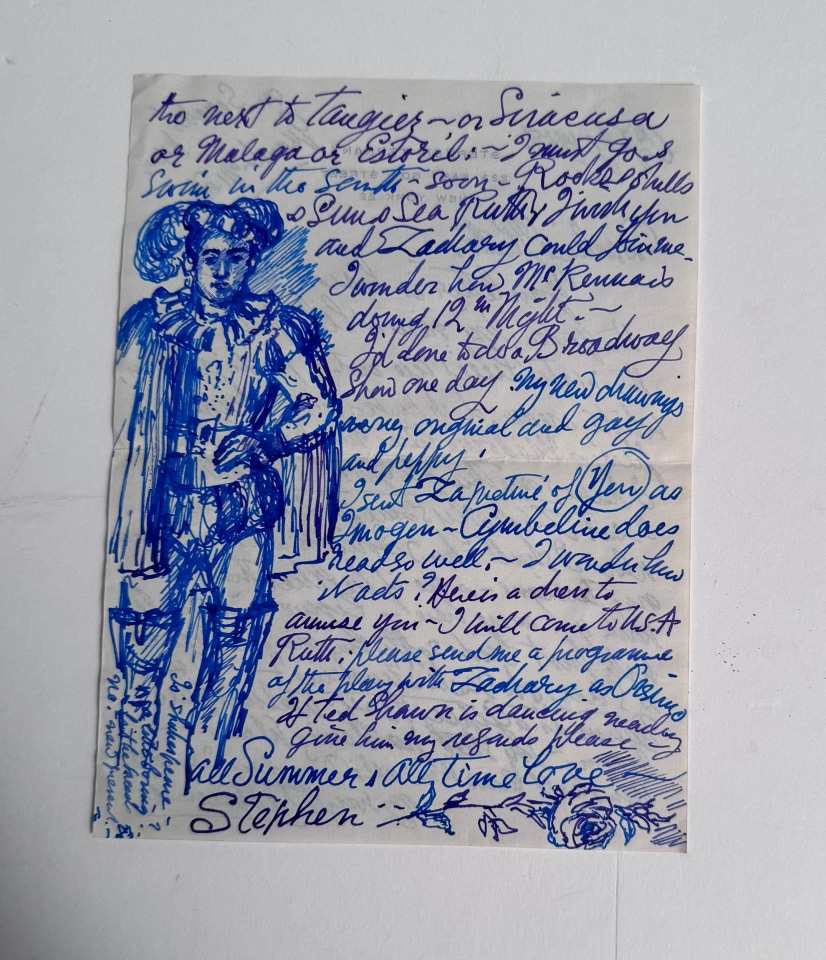 tho next to Tangier ~ or Siracusa
or Malaga or Estoril. ~ I must go &
Swim in the South - soon - Rocks & shells
& Sun & Sea Ruth, I wish you
and Zachary could join me -
I wonder how Mc Kenna is
doing 12th Night. ~
I'd love to do a Broadway
Show one day. My new drawings
very original and gay
and peppy!
I sent Za picture of You as
Imogen ~ Cymbeline does
read so well. ~ I wonder how
it acts? Here is a dress to
amuse you ~ I will come to U.S.A
Ruth; please send me a programme
of the play with Zachary as Orsino
If Ted Shawn is dancing nearby
give him my regards please ~
all Summer & All Time Love
Stephen
Is Shakespeare -
the past
No. new present. -